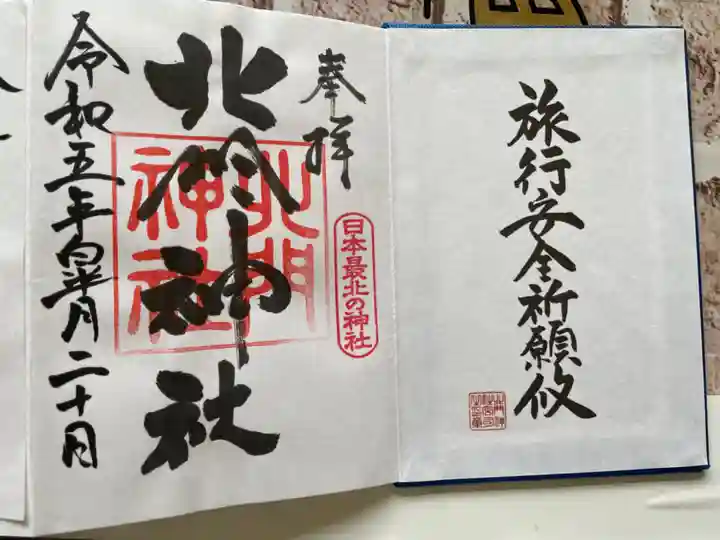 旅行安全祈願攸
奉拝
日本最北の神社
北門神社
北門神社
令和五年皐月二十日